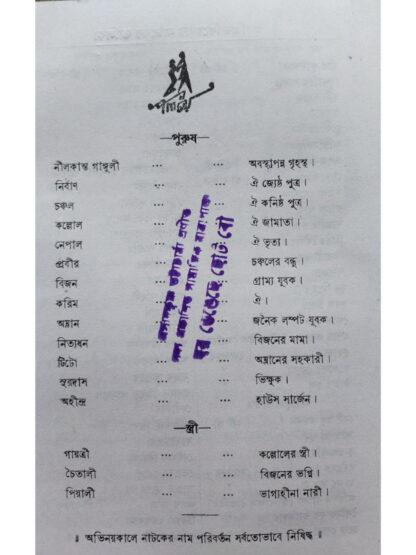 —পুরুষ—
নীলকান্ত গাঙ্গুলী ... ... অবস্থাপন্ন গৃহস্থ।
নির্বাণ ... ... ঐ জ্যেষ্ঠ পুত্র।
চঞ্চল ... ... ঐ কনিষ্ঠ পুত্র।
কল্লোল ... ... ঐ জামাতা।
নেপাল ... ... ঐ ভৃত্য।
প্রবীর ... ... চঞ্চলের বন্ধু।
বিজন ... ... গ্রাম্য যুবক।
করিম ... ... ঐ।
অম্লান ... ... জনৈক লম্পট যুবক।
নিত্যধন ... ... বিজনের মামা।
টিটো ... ... অম্লানের সহকারী।
সুরদাস ... ... ভিক্ষুক।
অহীন্দ্র ... ... হাউস সার্জেন।
—স্ত্রী—
গায়ত্রী ... ... কল্লোলের স্ত্রী।
চৈতালী ... ... বিজনের ভগ্নি।
পিয়ালী ... ... ভাগ্যহীনা নারী।
॥ অভিনয়কালে নাটকের নাম পরিবর্তন সর্বতোভাবে নিষিদ্ধ ॥
ঘর ভেঙেছে ছোট বৌ